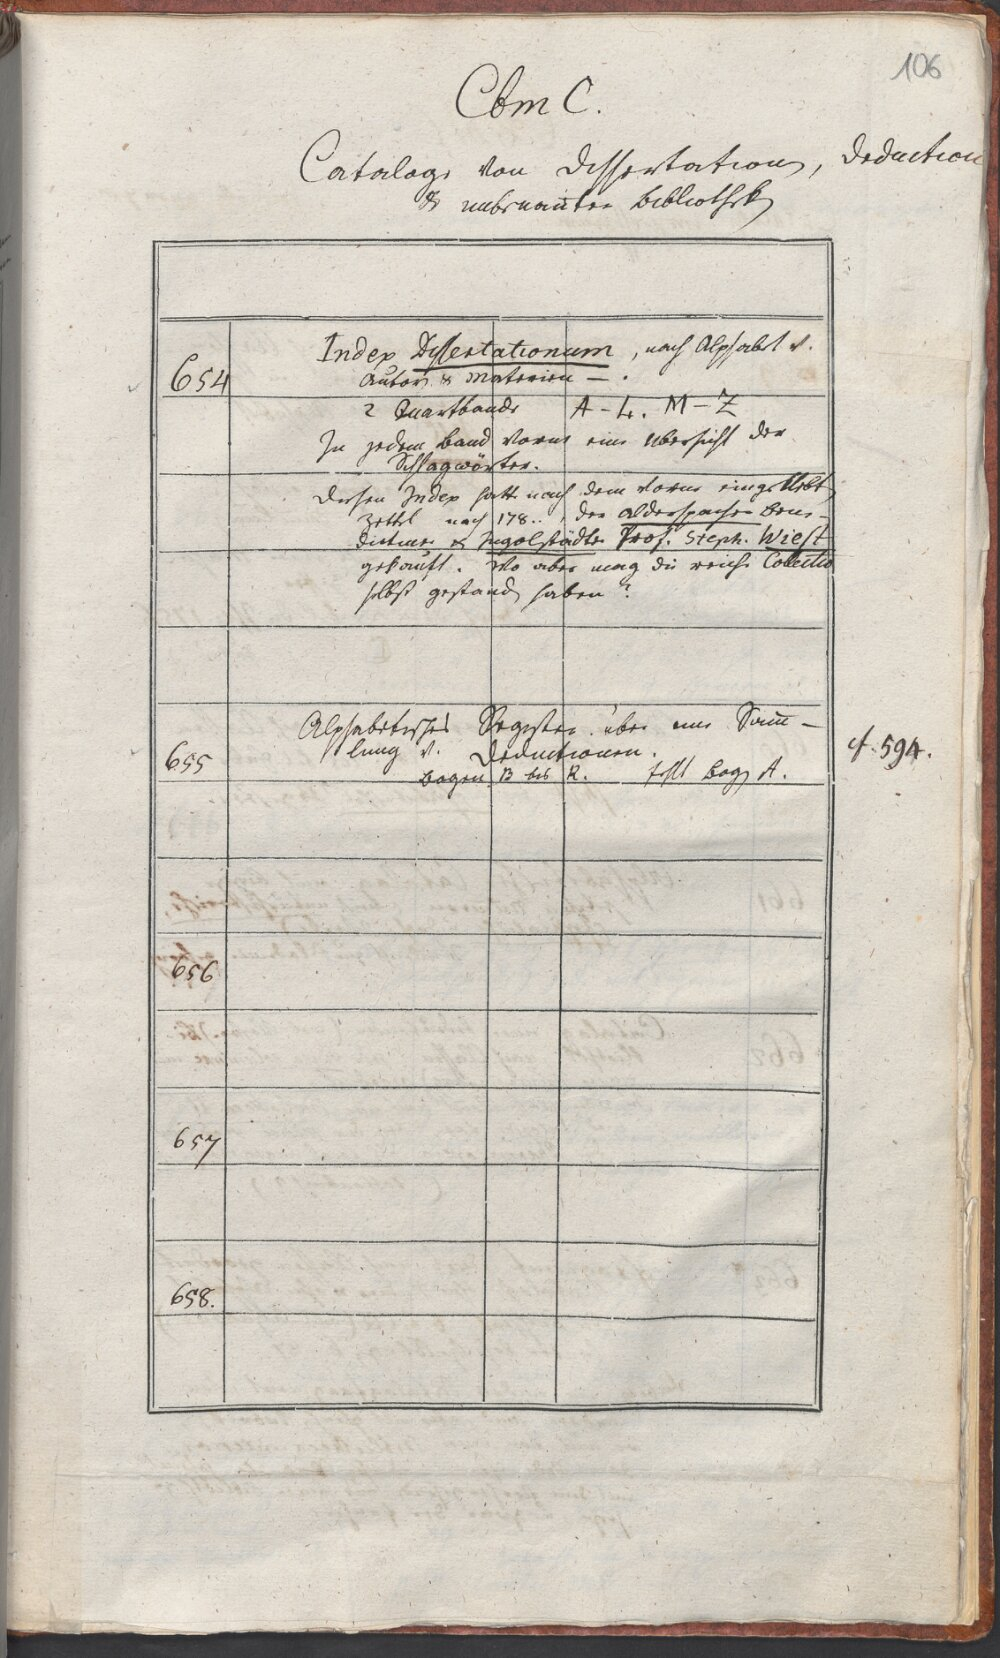 106
Cbm C.
Cataloge von Dissertationen, Deduction
& unbenannter Bibliothek
654
Index Dissertationum, nach Alphabet v.
Autor & Materien — .
2 Quartbande A – L. M – Z
In jedem Band vorne eine Ubersicht der
Schlagwörter.
Diesen Index hatte nach dem vorne eingeklebt
Zettel nach 178.. , der Alderspacher Bene-
dictiner & Ingolstädter Prof. Steph. Wiest
gekauft. Wo aber mag die reiche Collectio
selbst gestanden haben?
655
Alphabetisches Register über eine Sam̄-
lung v. Deductionen.
Bogen B bis R. fehlt Bog A.
cf. 594.
656
657
658.